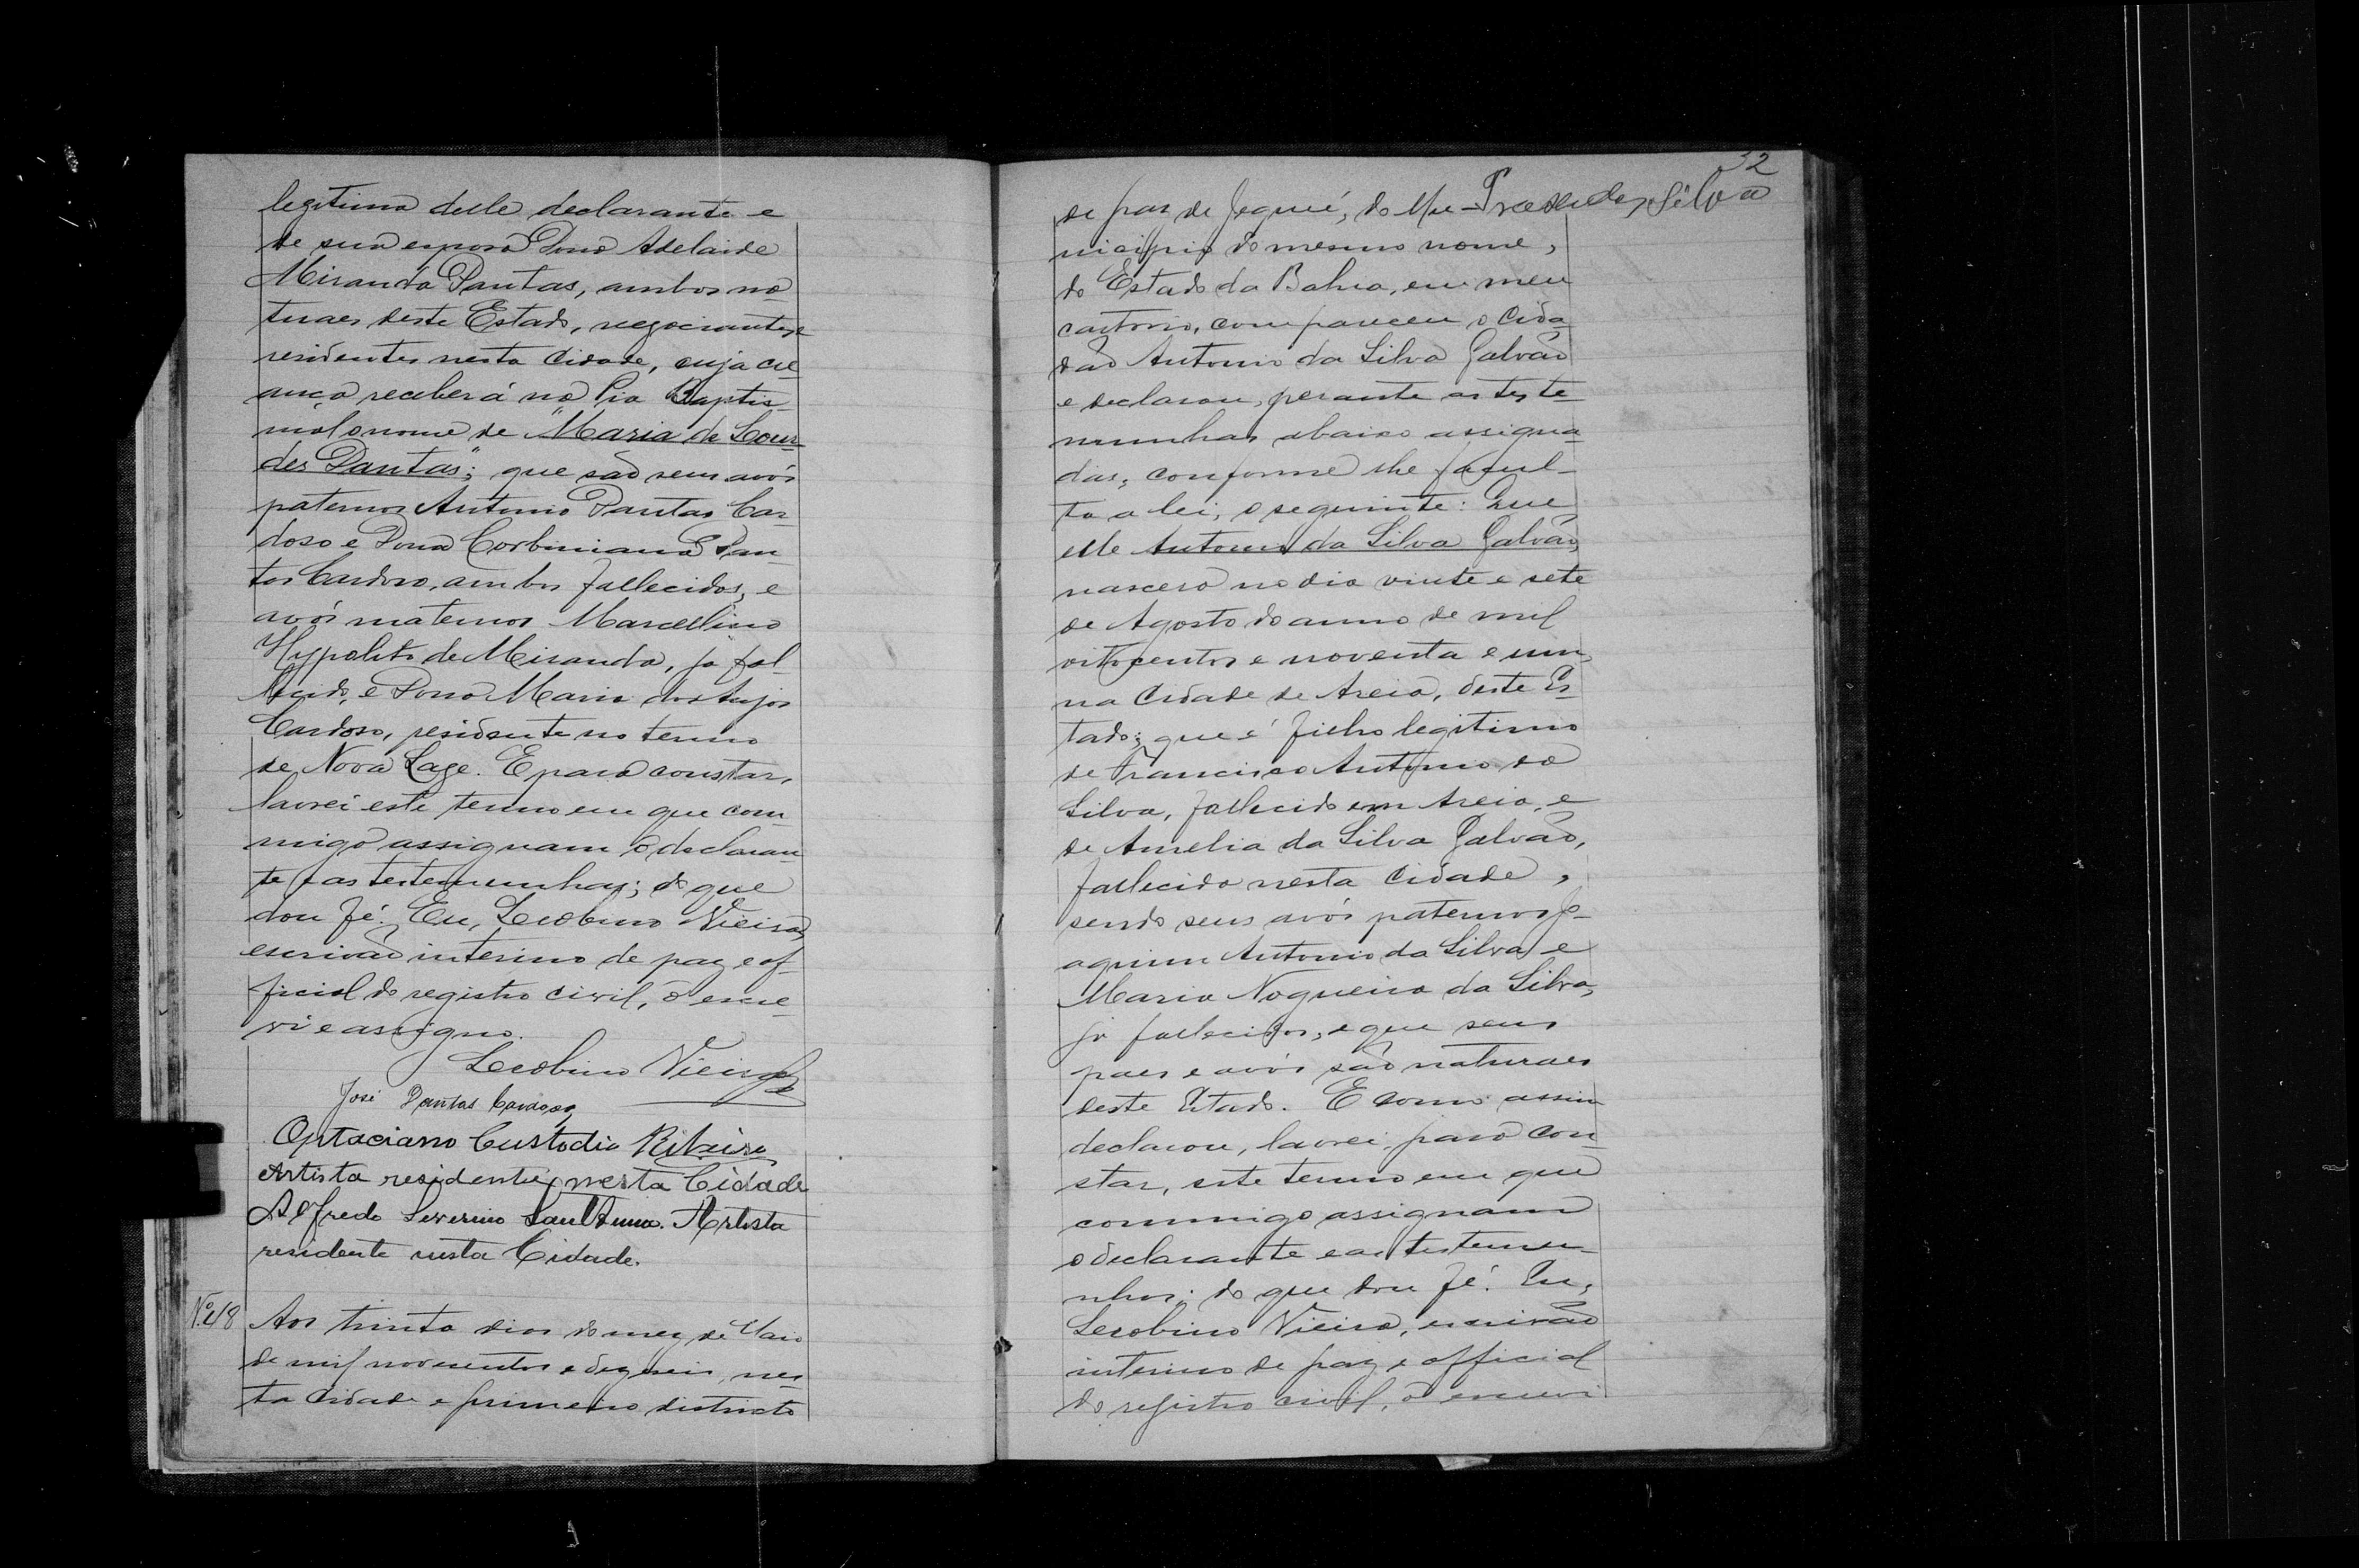 legitima delle declarante e
de sua esposa Dona Adelaide
Miranda Dantas, ambos na-
turaes deste Estado, negociantes e
residentes nesta Cidade, cuja cre-
ança receberá na Pia Baptis-
mal o nome de "Maria de Lour-
des Dantas"; que são seus avós
paternos Antonio Dantas Car-
doso e Dona Corbiniana Dan-
tas Cardoso, ambos fallecidos, e
avós maternos Marcellino
Hypolito de Miranda, ja fal-
lecido, e Dona Maria dos Anjos
Cardoso, residente no termo
de Nova Lage. E para constar,
lavrei este termo em que com-
migo assignam o declaran-
te e as testemunhas; do que
dou fé. Eu, Leobino Vieira,
escrivão interino de paz e of-
ficial do registro civil, o escre-
vi e assigno.
Leobino Vieira
José Dantas Cardoso
Optaciano Custodio Ribeiro
Artista residente nesta Cidade
Alfredo Severino Sant'Anna. Artista
residente nesta Cidade.
Nº 48 Aos trinta dias do mez de Maio
de mil novecentos e dezeseis, nes-
ta Cidade e primeiro districto
32
de paz de Jequié, do Mu-
nicipio do mesmo nome,
do Estado da Bahia, em meu
cartorio, compareceu o Cida-
dão Antonio da Silva Galvão
e declarou, perante as teste-
munhas abaixo assigna-
das, conforme lhe facul-
ta a lei, o seguinte: Que
elle Antonio da Silva Galvão,
nascera no dia vinte e sete
de Agosto do anno de mil
oitocentos e noventa e um,
na Cidade de Areia, deste Es-
tado; que é filho legitimo
de Francisco Antonio da
Silva, fallecido em Areia, e
de Amelia da Silva Galvão,
fallecida nesta Cidade,
sendo seus avós paternos Jo-
aquim Antonio da Silva e
Maria Nogueira da Silva,
já fallecidos, e que seus
paes e avós são naturaes
deste Estado. E como assim
declarou, lavrei, para con-
star, este termo em que
commigo assignam
o declarante e as testemu-
nhas; do que dou fé. Eu,
Leobino Vieira, escrivão
interino de paz e official
do registro civil, o escrevi